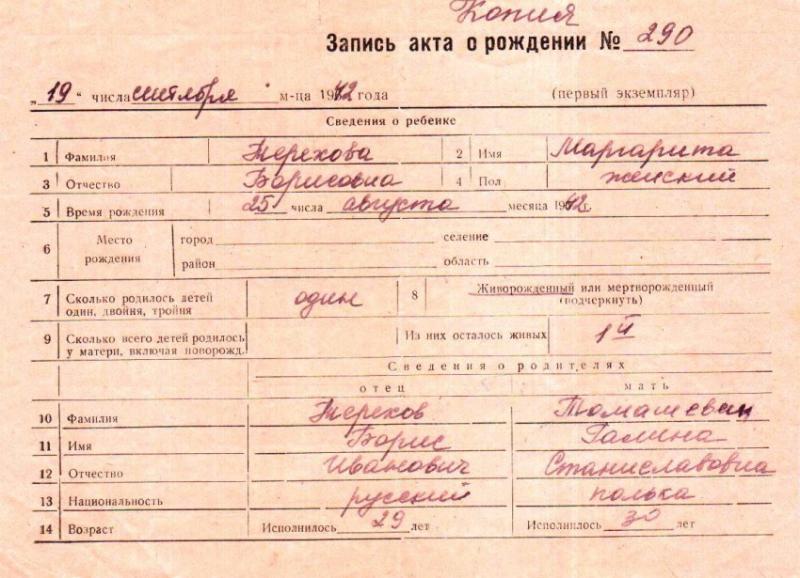 Копия
Запись акта о рождении № 290
„19“ числа сентября м-ца 1942 года (первый экземпляр)
Сведения о ребенке
1 Фамилия Терехова 2 Имя Маргарита
3 Отчество Борисовна 4 Пол женский
5 Время рождения 25 числа августа месяца 1942г.
6 Место рождения город селение
район область
7 Сколько родилось детей один, двойня, тройня один 8 Живорожденный или мертворожденный (подчеркнуть)
9 Сколько всего детей родилось у матери, включая новорожд. Из них осталось живых 1й
Сведения о родителях
отец мать
10 Фамилия Терехов Томашевич
11 Имя Борис Галина
12 Отчество Иванович Станиславовна
13 Национальность русский полька
14 Возраст Исполнилось 29 лет Исполнилось 30 лет